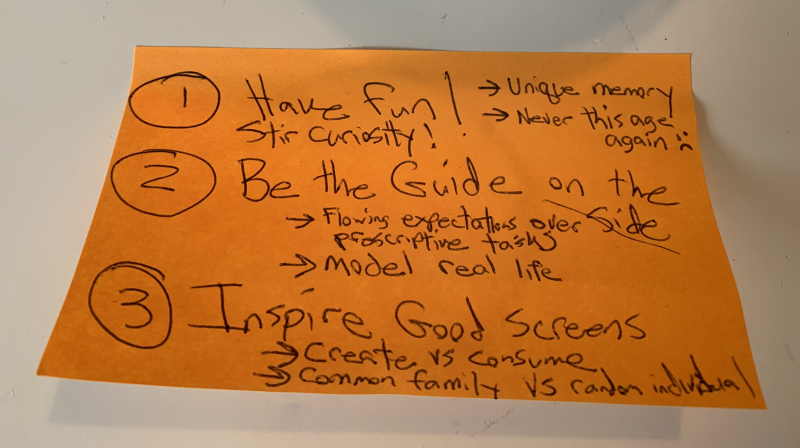 1 Have fun! → Unique memory
Stir curiosity! → Never this age
again :(
2 Be the Guide on the
Side
→ Flowing expectations over
proscriptive tasks
→ Model real life
3 Inspire Good Screens
→ Create vs consume
→ Common family vs random individual